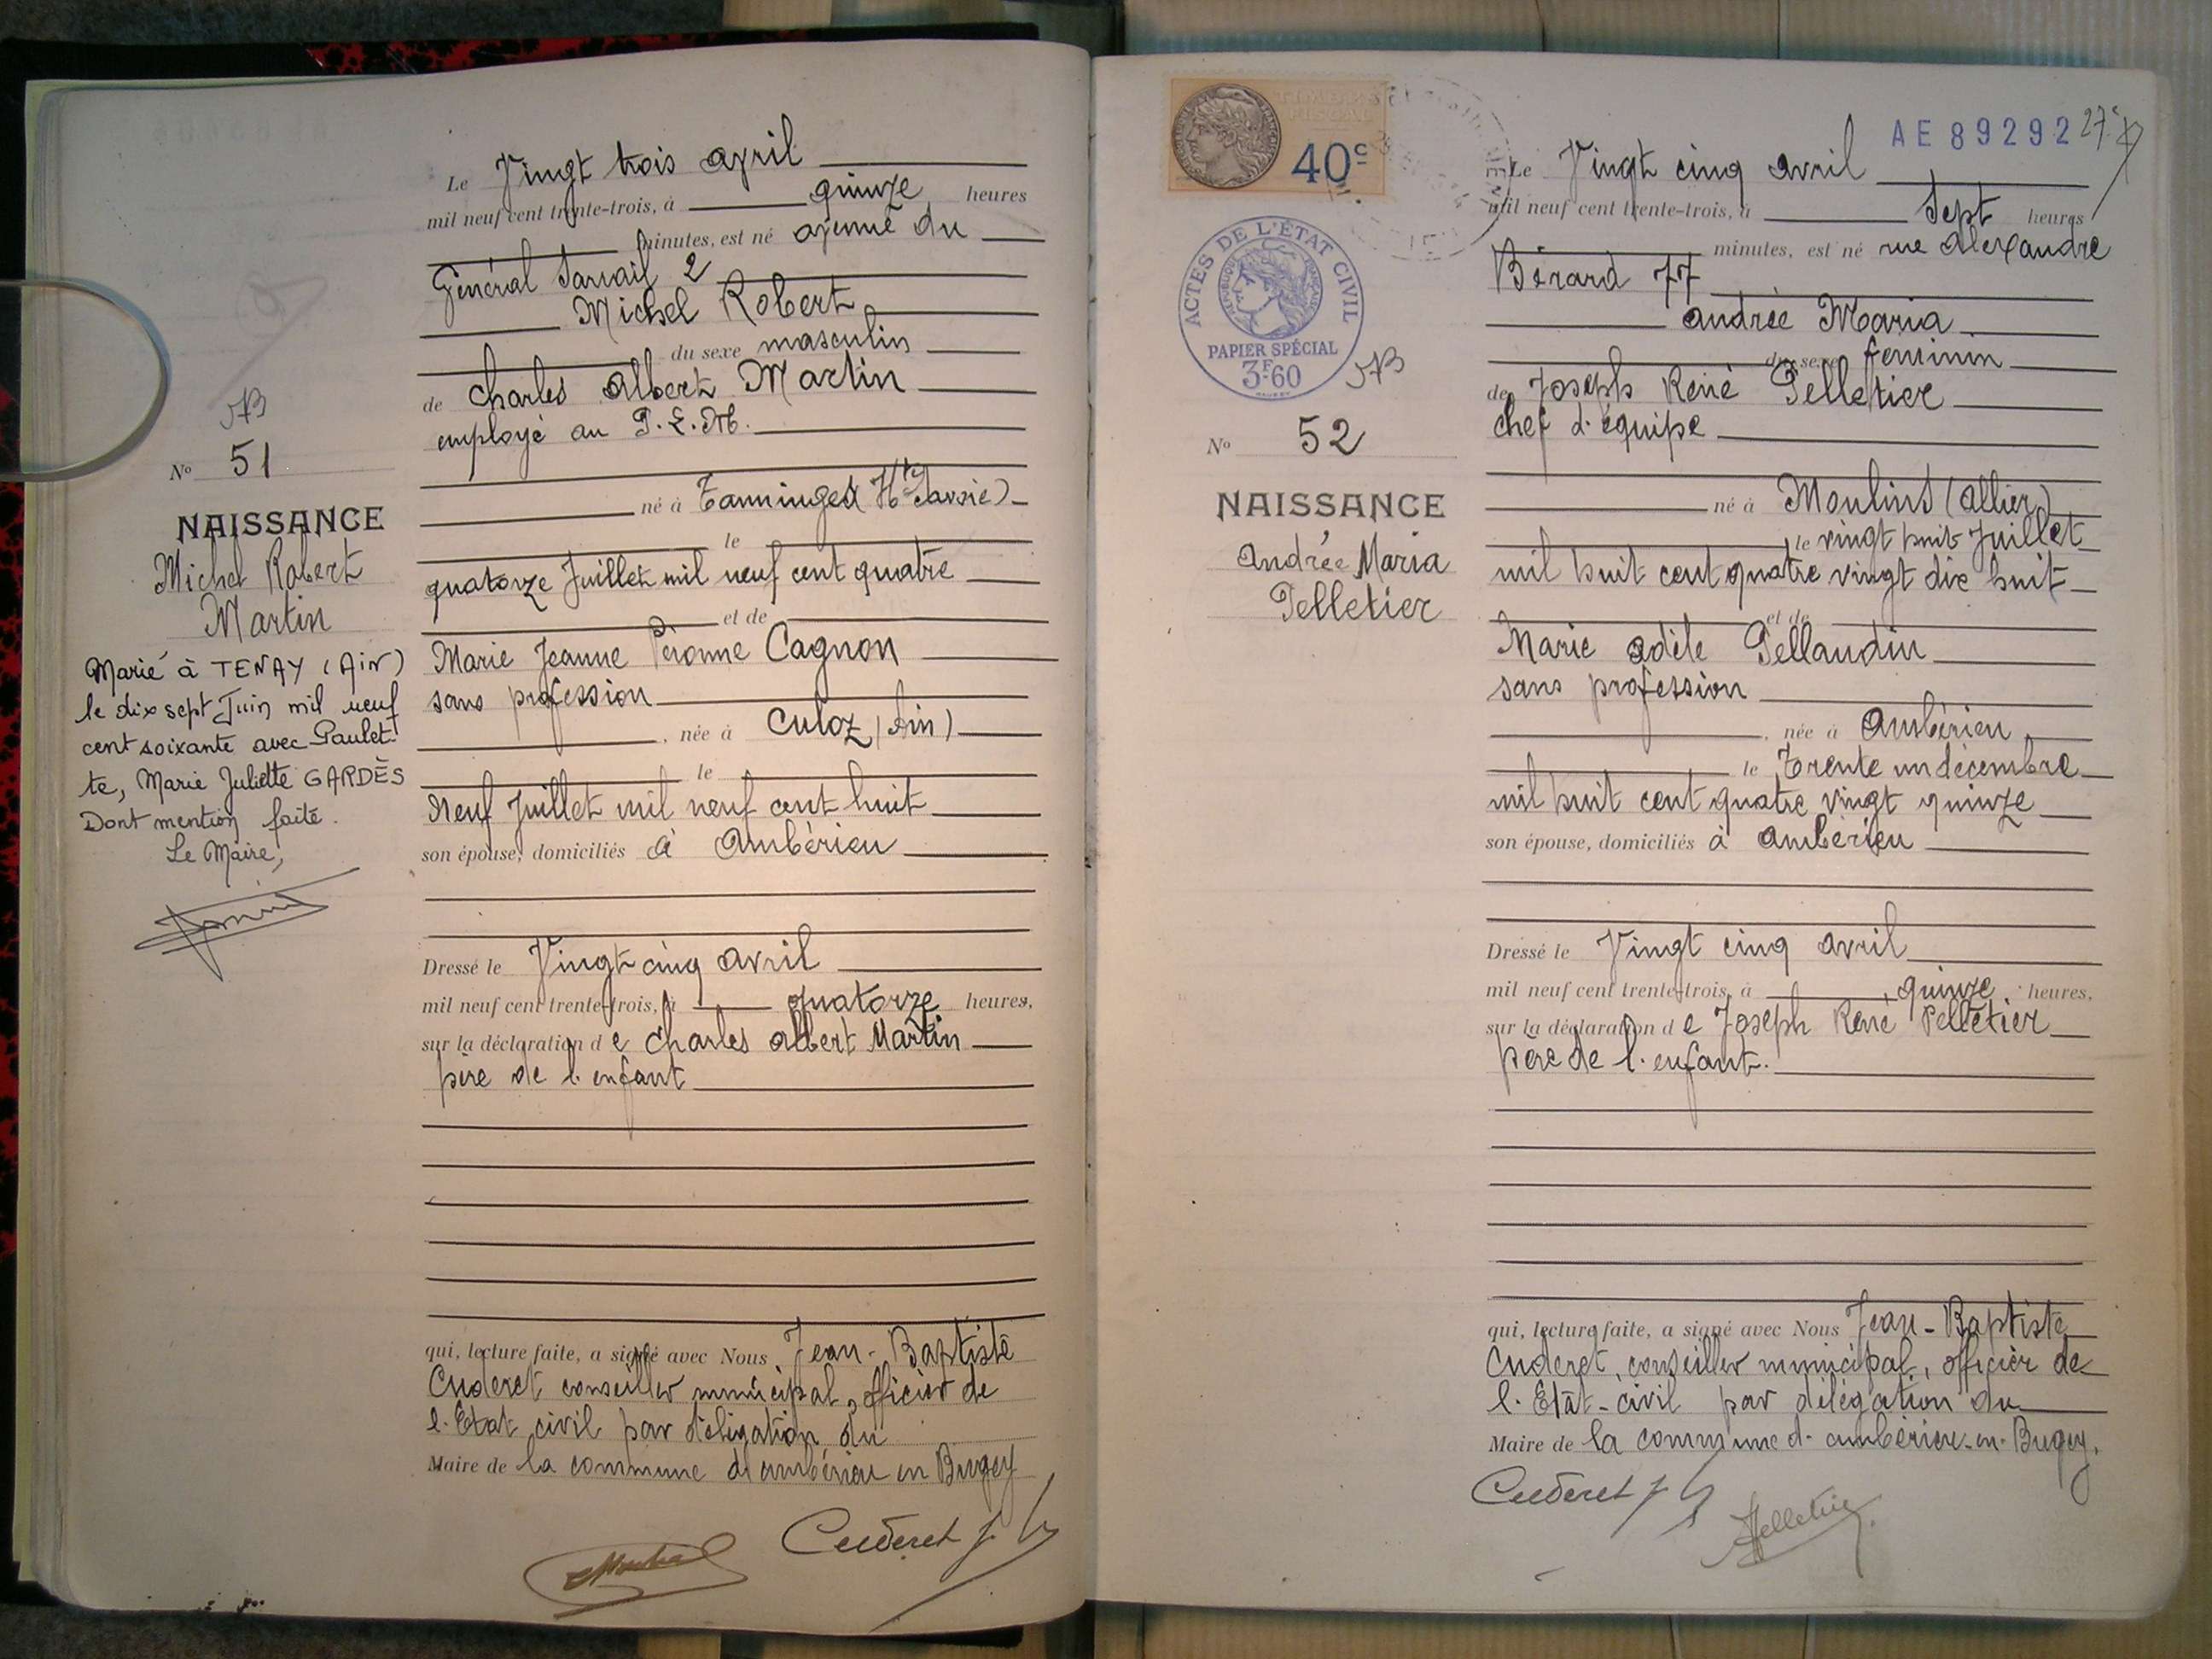 Le Vingt trois avril
mil neuf cent trente-trois, à quinze heures
minutes, est né avenue du
Général Sarrail 2
Michel Robert
du sexe masculin
de Charles Albert Martin
employé au P.L.M.
né à Tanninges (Hte Savoie)
le
quatorze Juillet mil neuf cent quatre
et de
Marie Jeanne Péronne Cagnon
sans profession
, née à Culoz (Ain)
le
Neuf Juillet mil neuf cent huit
son épouse, domiciliés à Ambérieu
Dressé le Vingt cinq avril
mil neuf cent trente-trois, à quatorze heures,
sur la déclaration de Charles Albert Martin
père de l'enfant
qui, lecture faite, a signé avec Nous Jean-Baptiste
Cuderet conseiller municipal, officier de
l'Etat civil par délégation du
Maire de la commune d'Ambérieu en Bugey
Cuderet J B
JB
No 51
NAISSANCE
Michel Robert
Martin
Marié à TENAY (Ain)
le dix sept Juin mil neuf
cent soixante avec Paulet-
te, Marie Juliette GARDÈS
Dont mention faite.
Le Maire,
TIMBRE
FISCAL
40c
ACTES DE L'ÉTAT CIVIL
RÉPUBLIQUE FRANÇAISE
PAPIER SPÉCIAL
3F60
JB
No 52
NAISSANCE
Andrée Maria
Pelletier
AE 89292
27e
Le Vingt cinq avril
mil neuf cent trente-trois, à Sept heures
minutes, est né rue Alexandre
Bérard 77
Andrée Maria
du sexe feminin
de Joseph René Pelletier
chef d'équipe
né à Moulins (Allier)
le vingt huit Juillet
mil huit cent quatre vingt dix huit
et de
Marie Adèle Pellaudin
sans profession
, née à Ambérieu
le Trente un décembre
mil huit cent quatre vingt quinze
son épouse, domiciliés à Ambérieu
Dressé le Vingt cinq avril
mil neuf cent trente-trois, à quinze heures,
sur la déclaration de Joseph René Pelletier
père de l'enfant.
qui, lecture faite, a signé avec Nous Jean-Baptiste
Cuderet, conseiller municipal, officier de
l'Etat-civil par délégation du
Maire de la commune d'Ambérieu-en-Bugey.
Cuderet J B
Pelletier